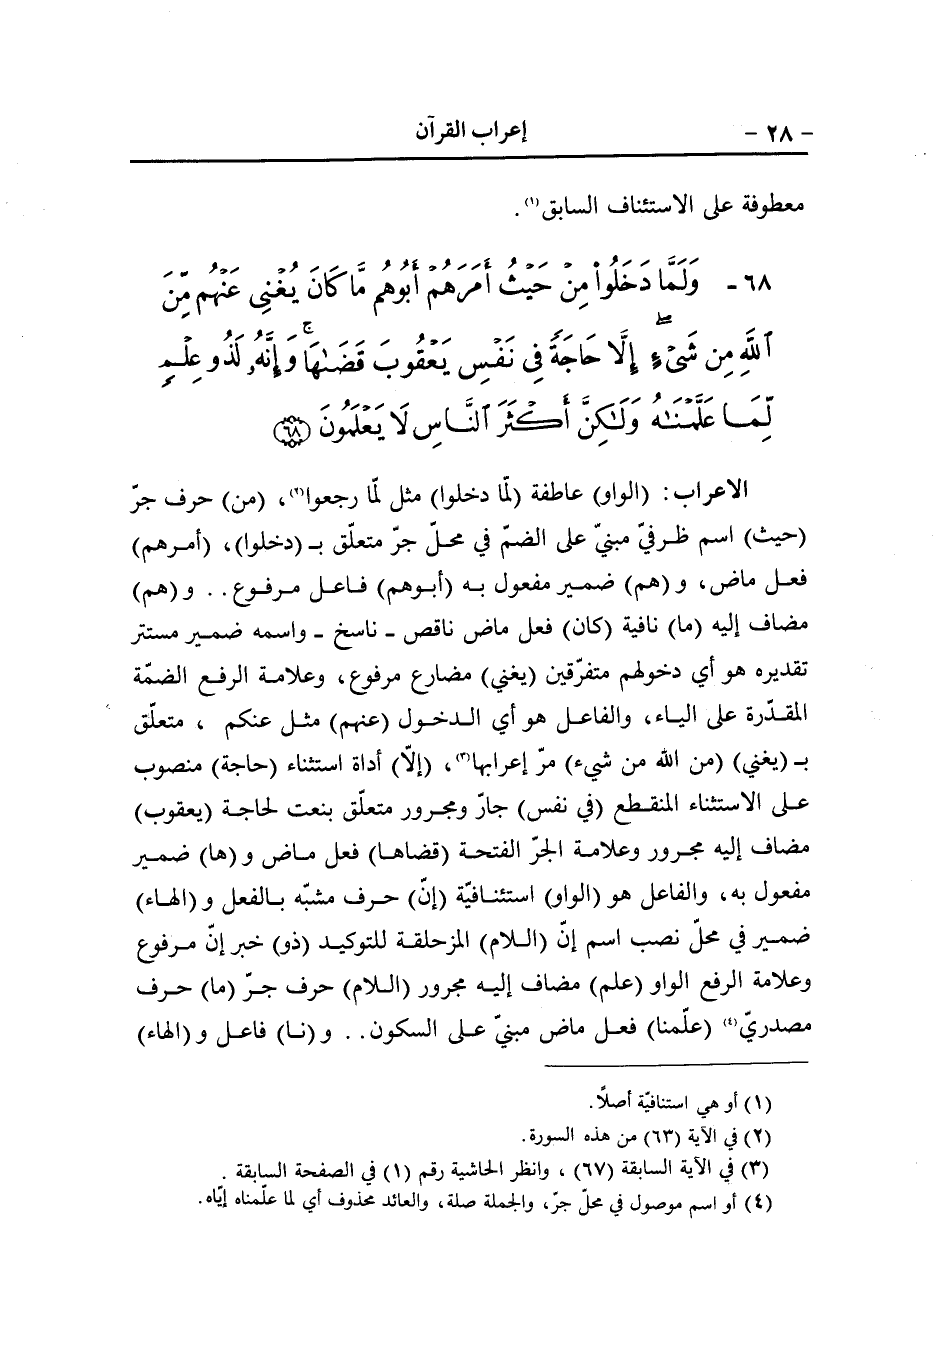 - ٢٨ - إعراب القرآن
معطوفة على الاستئناف السابق(١).
٦٨- وَلَمَّا دَخَلُوا۟ مِنْ حَيْثُ أَمَرَهُمْ أَبُوهُم مَّا كَانَ يُغْنِى عَنْهُم مِّنَ
ٱللَّهِ مِن شَىْءٍ إِلَّا حَاجَةً فِى نَفْسِ يَعْقُوبَ قَضَىٰهَا ۚ وَإِنَّهُۥ لَذُو عِلْمٍ
لِّمَا عَلَّمْنَـٰهُ وَلَـٰكِنَّ أَكْثَرَ ٱلنَّاسِ لَا يَعْلَمُونَ ﴿٦٨﴾
الاعراب: (الواو) عاطفة (لمّا دخلوا) مثل لمّا رجعوا(٢)، (من) حرف جرّ
(حيث) اسم ظرفيّ مبنيّ على الضمّ في محلّ جرّ متعلّق بـ (دخلوا)، (أمرهم)
فعل ماض، و (هم) ضمير مفعول به (أبوهم) فاعل مرفوع.. و (هم)
مضاف إليه (ما) نافية (كان) فعل ماض ناقص - ناسخ - واسمه ضمير مستتر
تقديره هو أي دخولهم متفرّقين (يغني) مضارع مرفوع، وعلامة الرفع الضمّة
المقدّرة على الياء، والفاعل هو أي الدخول (عنهم) مثل عنكم ، متعلّق
بـ (يغني) (من الله من شيء) مرّ إعرابها(٣)، (إلّا) أداة استثناء (حاجة) منصوب
على الاستثناء المنقطع (في نفس) جارّ ومجرور متعلّق بنعت لحاجة (يعقوب)
مضاف إليه مجرور وعلامة الجرّ الفتحة (قضاها) فعل ماض و (ها) ضمير
مفعول به، والفاعل هو (الواو) استئنافيّة (إنّ) حرف مشبّه بالفعل و (الهاء)
ضمير في محلّ نصب اسم إنّ (اللام) المزحلقة للتوكيد (ذو) خبر إنّ مرفوع
وعلامة الرفع الواو (علم) مضاف إليه مجرور (اللام) حرف جرّ (ما) حرف
مصدريّ(٤) (علّمنا) فعل ماض مبنيّ على السكون.. و (نا) فاعل و (الهاء)
(١) أو هي استنافيّة أصلاً.
(٢) في الآية (٦٣) من هذه السورة.
(٣) في الآية السابقة (٦٧) ، وانظر الحاشية رقم (١) في الصفحة السابقة .
(٤) أو اسم موصول في محلّ جرّ، والجملة صلة، والعائد محذوف أي لما علّمناه إيّاه.